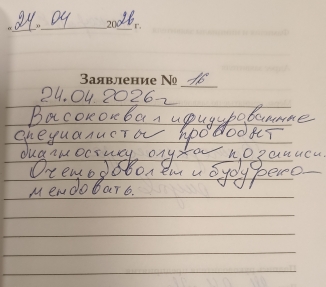 "24" 04 2026 г.
Заявление № 16
24.04.2026 г
Высококвалифицированные
специалисты проводят
диагностику слуха по записи.
Очень доволен и буду реко-
мендовать.